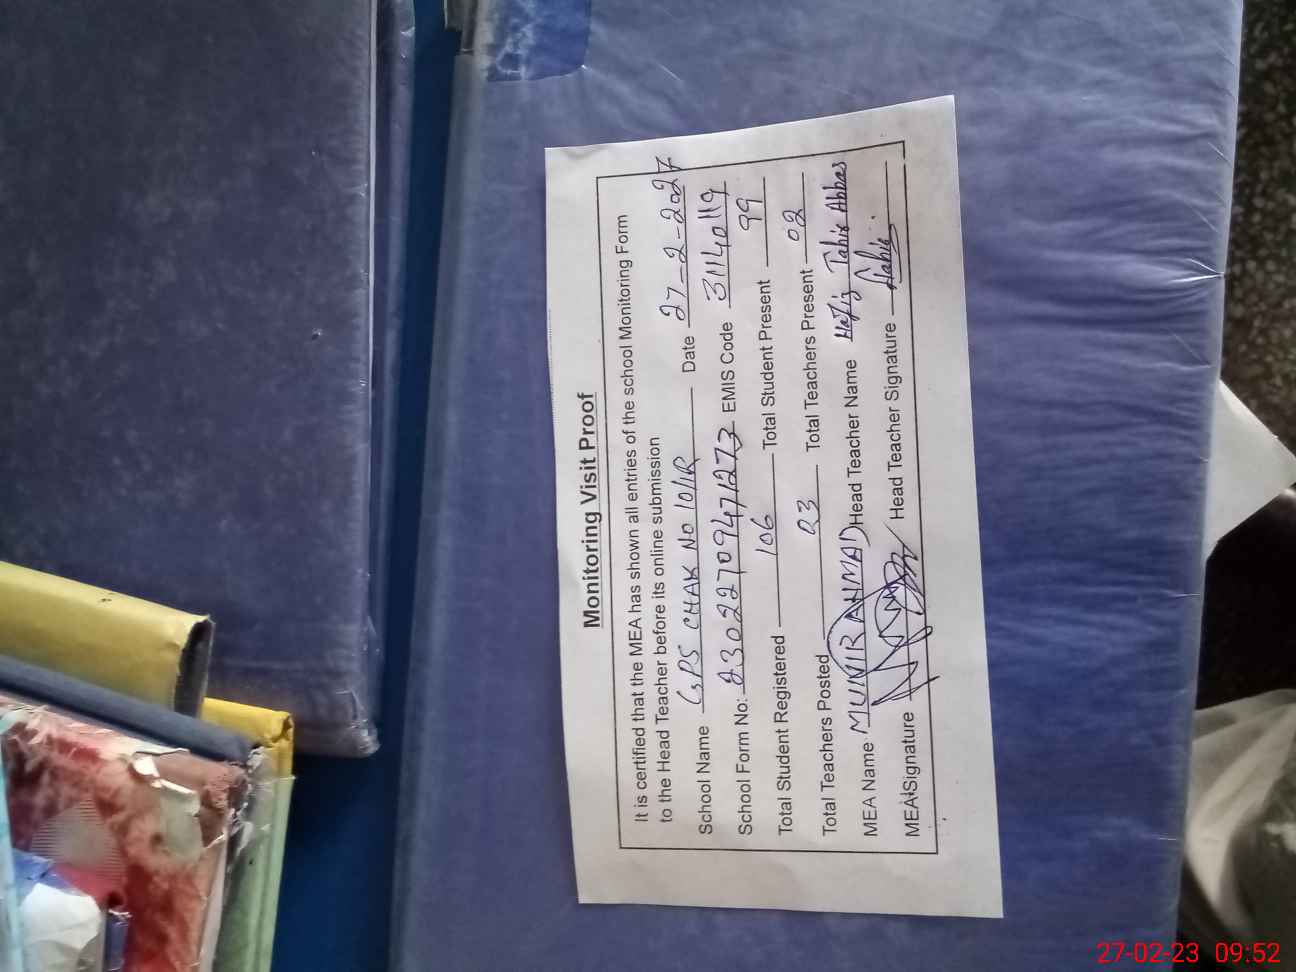 Monitoring Visit Proof
It is certified that the MEA has shown all entries of the school Monitoring Form
to the Head Teacher before its online submission
School Name GPS CHAK No 10/1R Date 27-2-2027
School Form No: 23022709471273 EMIS Code 31140119
Total Student Registered 106 Total Student Present 99
Total Teachers Posted 03 Total Teachers Present 02
MEA Name MUNIR AHMAD Head Teacher Name Hafiz Tahir Abbas
MEA Signature Head Teacher Signature Tahir
27-02-23 09:52